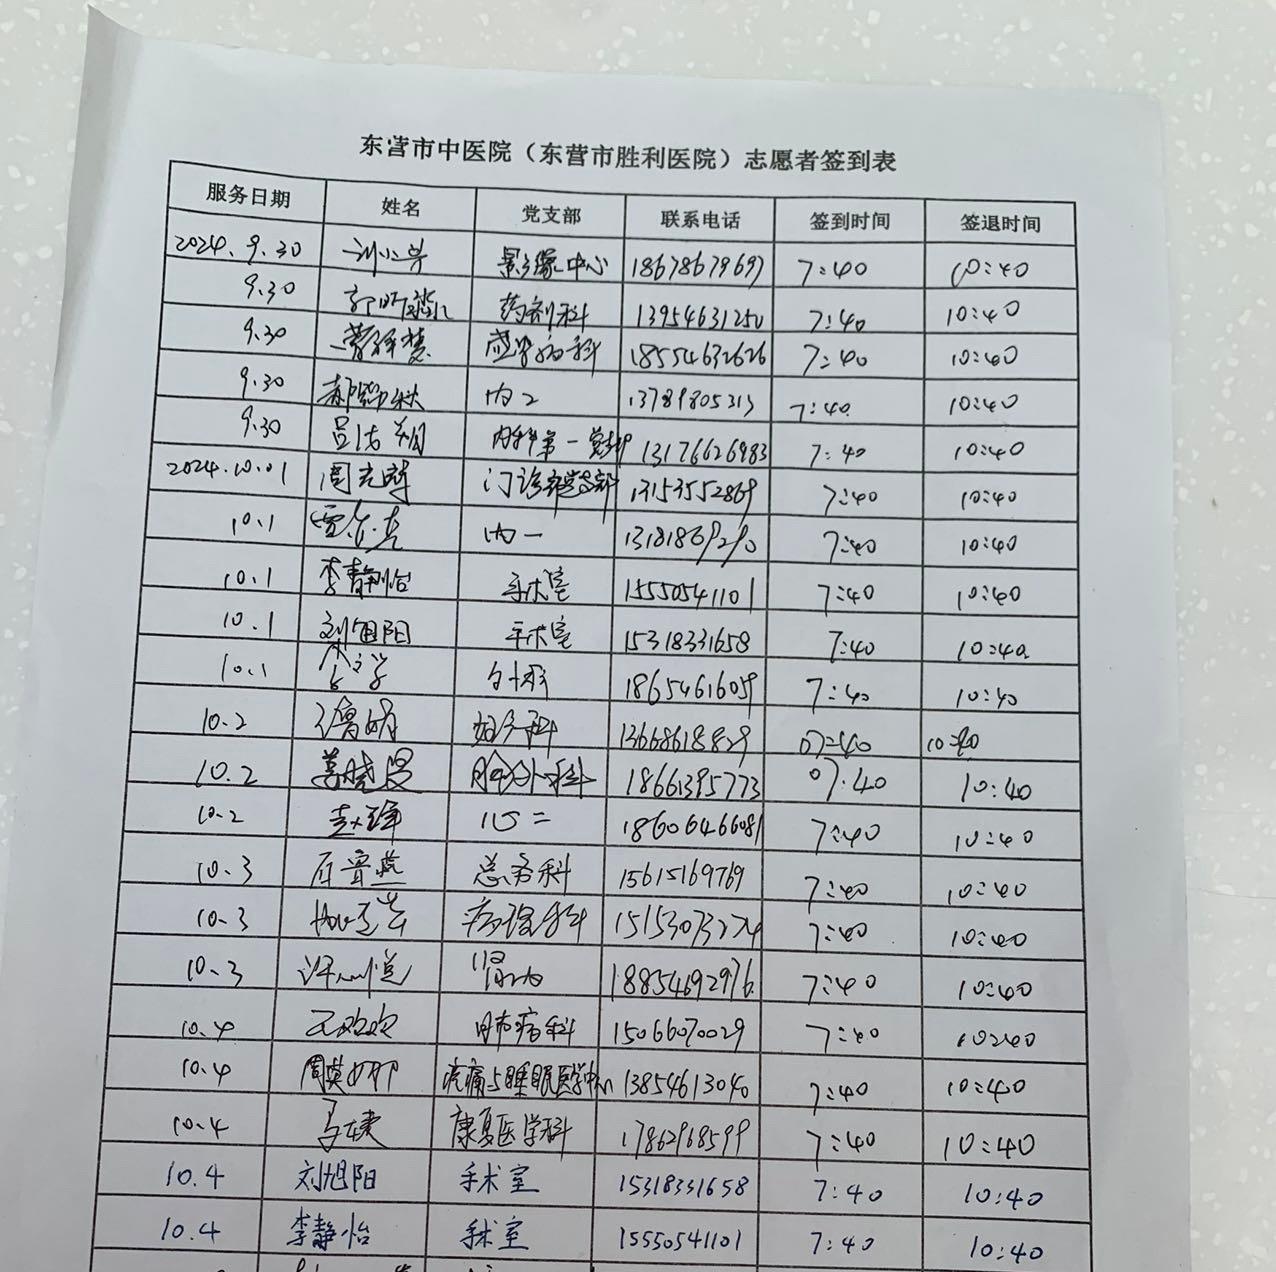 东营市中医院（东营市胜利医院）志愿者签到表
服务日期 姓名 党支部 联系电话 签到时间 签退时间
2024.9.30 影像中心 18678679697 7:40 10:40
9.30 药剂科 13954631250 7:40 10:40
9.30 感染病科 18554632626 7:40 10:40
9.30 内2 13789805313 7:40 10:40
9.30 吕浩翔 内科第一党支部 13176626983 7:40 10:40
2024.10.01 门诊部党支部 13153552869 7:40 10:40
10.1 内一 13181869290 7:40 10:40
10.1 李静怡 手术室 15550541101 7:40 10:40
10.1 刘旭阳 手术室 15318331658 7:40 10:40
10.1 18654616059 7:40 10:40
10.2 妇产科 13668618829 07:40 10:40
10.2 18661395773 07:40 10:40
10.2 18606466081 7:40 10:40
10.3 总务科 15615169769 7:40 10:40
10.3 病理科 15153073274 7:40 10:40
10.3 18854692976 7:40 10:40
10.4 王欢欢 肺病科 15066070029 7:40 10:40
10.4 周英娜 疼痛与睡眠医学中心 13854613040 7:40 10:40
10.4 康复医学科 17862968599 7:40 10:40
10.4 刘旭阳 手术室 15318331658 7:40 10:40
10.4 李静怡 手术室 15550541101 7:40 10:40